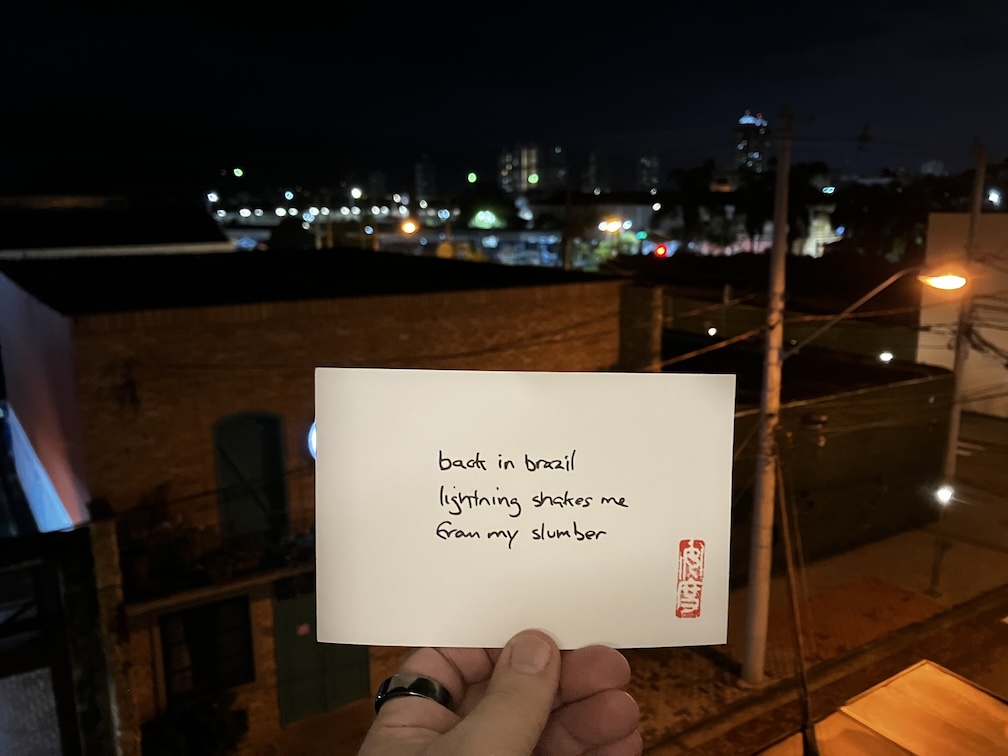 back in brazil
lightning shakes me
from my slumber